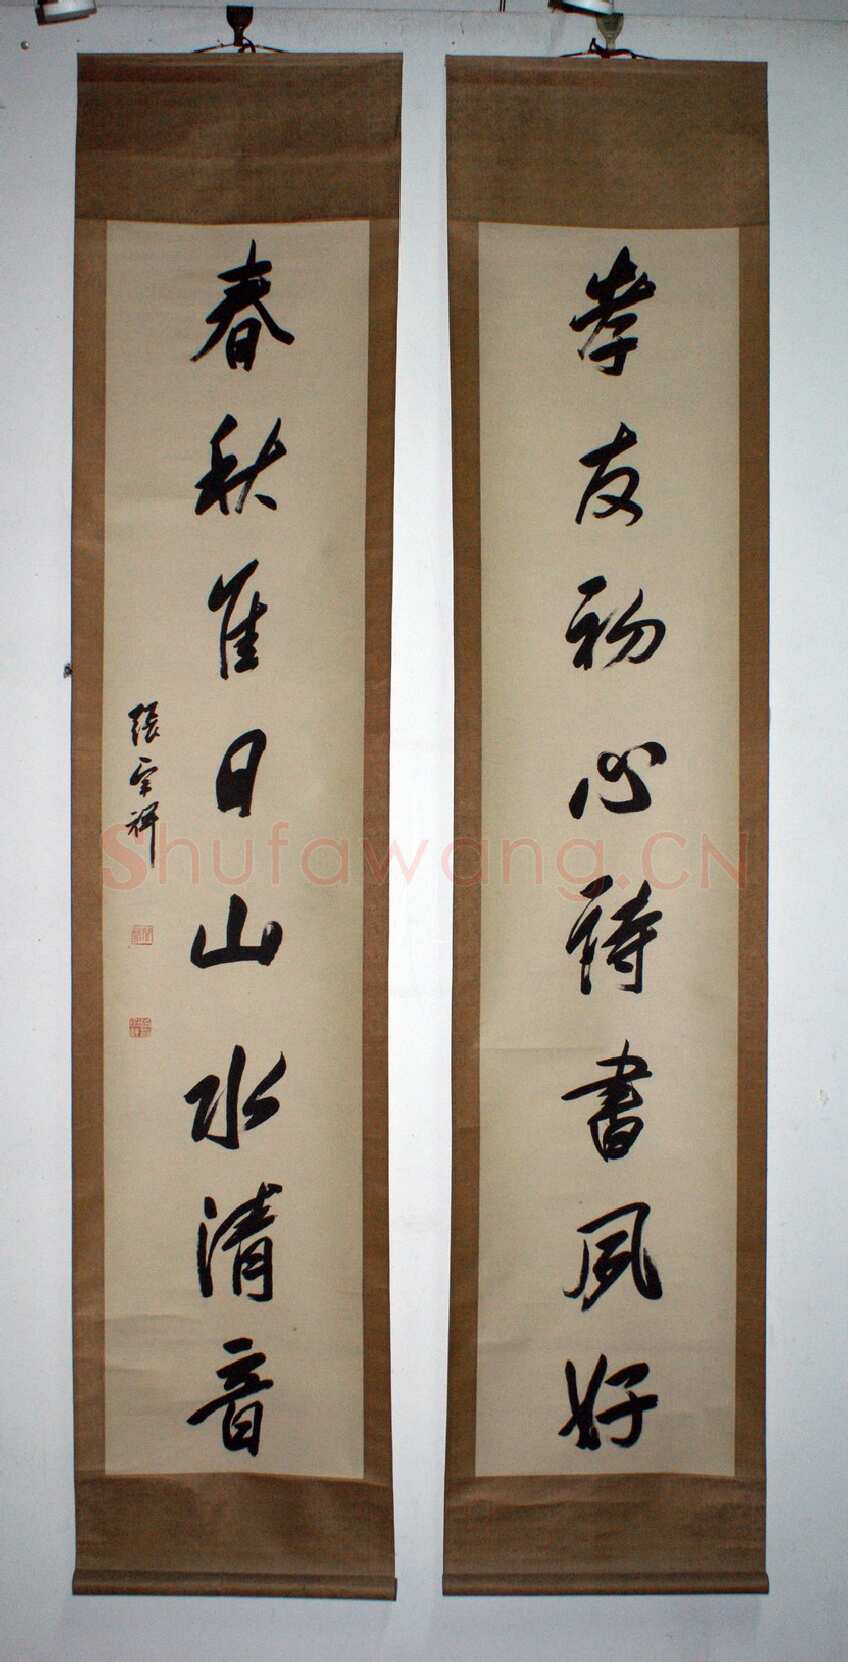 孝友初心詩書夙好
春秋佳日山水清音
張宗祥
Shufawang.CN